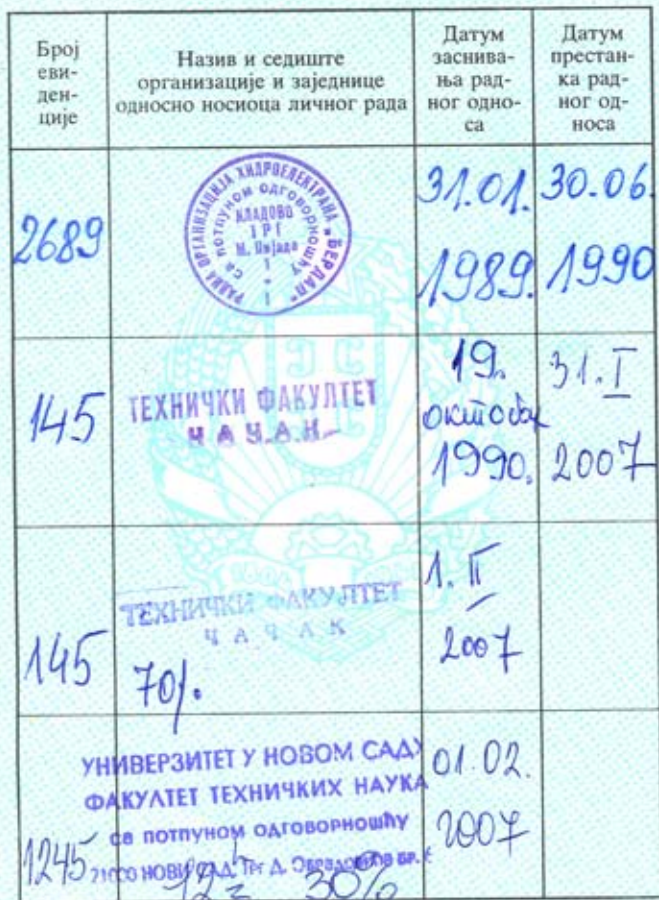 Број
еви-
ден-
ције
Назив и седиште
организације и заједнице
односно носиоца личног рада
Датум
заснива-
ња рад-
ног одно-
са
Датум
престан-
ка рад-
ног од-
носа
2689
РАДНА ОРГАНИЗАЦИЈА ХИДРОЕЛЕКТРАНА "ЂЕРДАП"
са потпуном одговорношћу
КЛАДОВО
31.01.
1989.
30.06.
1990
145
ТЕХНИЧКИ ФАКУЛТЕТ
ЧАЧАК
19.
октобар
1990.
31.I
2007
145
ТЕХНИЧКИ ФАКУЛТЕТ
ЧАЧАК
70%.
1. II
2007
1245
УНИВЕРЗИТЕТ У НОВОМ САДУ
ФАКУЛТЕТ ТЕХНИЧКИХ НАУКА
са потпуном одговорношћу
21000 НОВИ САД, Трг Д. Обрадовића бр. 6
30%
01.02.
2007